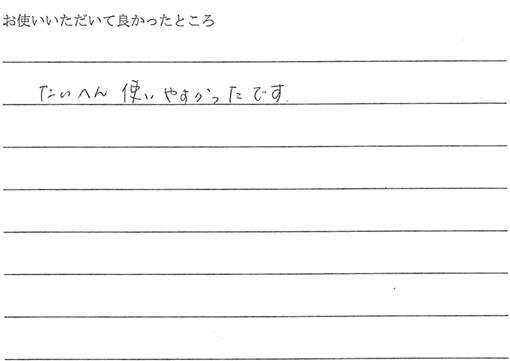 お使いいただいて良かったところ
たいへん使いやすかったです